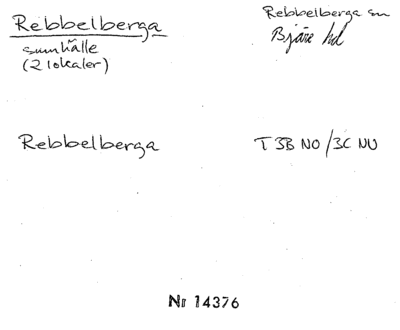 Rebbelberga
samhälle
(2 lokaler)
Rebbelberga sn
Bjäre hd
Rebbelberga
T 3B NO/3C NV
Nr 14376